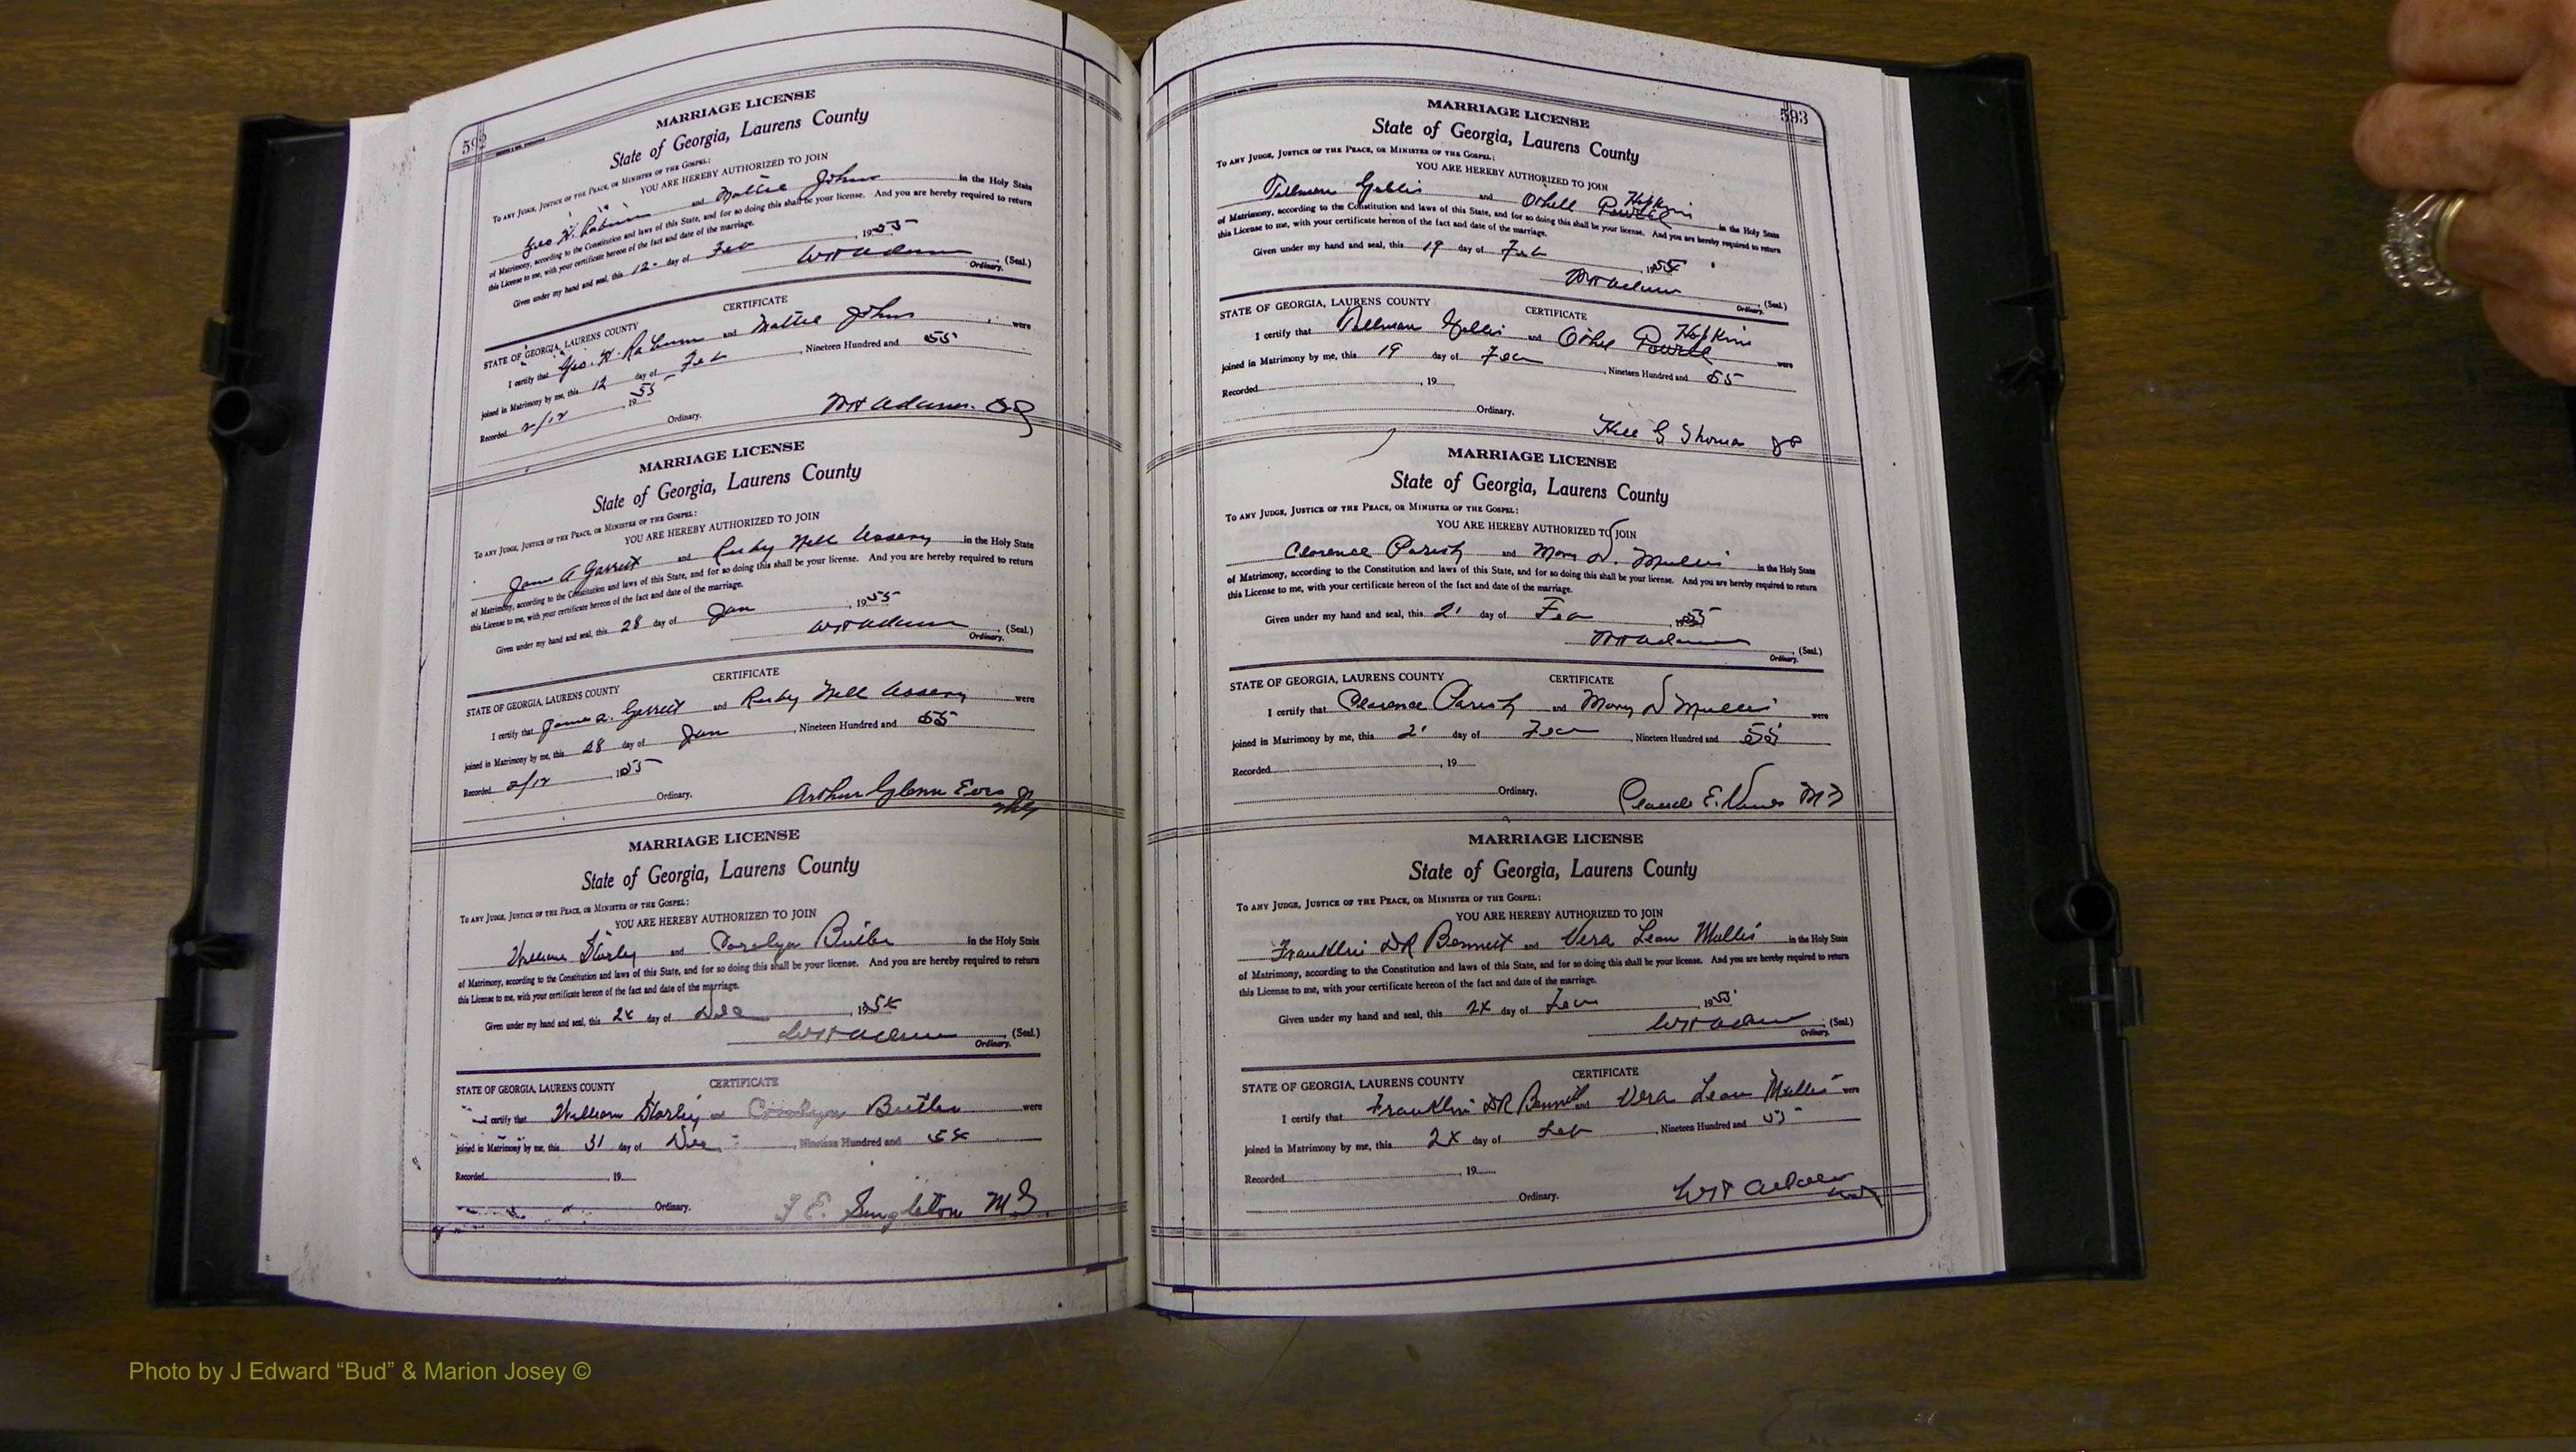 592
MARRIAGE LICENSE
State of Georgia, Laurens County
To any Judge, Justice of the Peace, or Minister of the Gospel:
YOU ARE HEREBY AUTHORIZED TO JOIN
Geo H. and Mattie Johns in the Holy State
of Matrimony, according to the Constitution and laws of this State, and for so doing this shall be your license. And you are hereby required to return
this License to me, with your certificate hereon of the fact and date of the marriage.
Given under my hand and seal, this 12 day of Feb, 1955
WH Adams (Seal.)
Ordinary.
CERTIFICATE
STATE OF GEORGIA, LAURENS COUNTY
I certify that Geo. H. and Mattie Johns were
joined in Matrimony by me, this 12 day of Feb, Nineteen Hundred and 55
Recorded 2/12, 1955
Ordinary.
WH Adams
MARRIAGE LICENSE
State of Georgia, Laurens County
To any Judge, Justice of the Peace, or Minister of the Gospel:
YOU ARE HEREBY AUTHORIZED TO JOIN
James A Garrett and Ruby Nell in the Holy State
of Matrimony, according to the Constitution and laws of this State, and for so doing this shall be your license. And you are hereby required to return
this License to me, with your certificate hereon of the fact and date of the marriage.
Given under my hand and seal, this 28 day of Jan, 1955
WH Adams (Seal.)
Ordinary.
CERTIFICATE
STATE OF GEORGIA, LAURENS COUNTY
I certify that James A. Garrett and Ruby Nell were
joined in Matrimony by me, this 28 day of Jan, Nineteen Hundred and 55
Recorded 2/12, 1955
Ordinary.
Arthur Glenn
MARRIAGE LICENSE
State of Georgia, Laurens County
To any Judge, Justice of the Peace, or Minister of the Gospel:
YOU ARE HEREBY AUTHORIZED TO JOIN
William and Carolyn Butler in the Holy State
of Matrimony, according to the Constitution and laws of this State, and for so doing this shall be your license. And you are hereby required to return
this License to me, with your certificate hereon of the fact and date of the marriage.
Given under my hand and seal, this 24 day of Dec, 1954
WH Adams (Seal.)
Ordinary.
STATE OF GEORGIA, LAURENS COUNTY CERTIFICATE
I certify that William and Carolyn Butler were
joined in Matrimony by me, this 31 day of Dec, Nineteen Hundred and 54
Recorded, 19
Ordinary.
E. Singleton M.G.
593
MARRIAGE LICENSE
State of Georgia, Laurens County
To any Judge, Justice of the Peace, or Minister of the Gospel:
YOU ARE HEREBY AUTHORIZED TO JOIN
Tillman Gillis and Othell Hopkins in the Holy State
of Matrimony, according to the Constitution and laws of this State, and for so doing this shall be your license. And you are hereby required to return
this License to me, with your certificate hereon of the fact and date of the marriage.
Given under my hand and seal, this 19 day of Feb, 1955
WH Adams (Seal.)
Ordinary.
STATE OF GEORGIA, LAURENS COUNTY CERTIFICATE
I certify that Tillman Gillis and Hopkins were
joined in Matrimony by me, this 19 day of Feb, Nineteen Hundred and 55
Recorded, 19
Ordinary.
JP
MARRIAGE LICENSE
State of Georgia, Laurens County
To any Judge, Justice of the Peace, or Minister of the Gospel:
YOU ARE HEREBY AUTHORIZED TO JOIN
Clarence Parish and Mary D. Mullis in the Holy State
of Matrimony, according to the Constitution and laws of this State, and for so doing this shall be your license. And you are hereby required to return
this License to me, with your certificate hereon of the fact and date of the marriage.
Given under my hand and seal, this 21 day of Feb, 1955
WH Adams (Seal.)
Ordinary.
STATE OF GEORGIA, LAURENS COUNTY CERTIFICATE
I certify that Clarence Parish and Mary D Mullis were
joined in Matrimony by me, this 21 day of Feb, Nineteen Hundred and 55
Recorded, 19
Ordinary.
Claude E. Vines
MARRIAGE LICENSE
State of Georgia, Laurens County
To any Judge, Justice of the Peace, or Minister of the Gospel:
YOU ARE HEREBY AUTHORIZED TO JOIN
Franklin DR Bennett and Vera Lean Mullis in the Holy State
of Matrimony, according to the Constitution and laws of this State, and for so doing this shall be your license. And you are hereby required to return
this License to me, with your certificate hereon of the fact and date of the marriage.
Given under my hand and seal, this 24 day of Feb, 1955
WH Adams (Seal.)
Ordinary.
STATE OF GEORGIA, LAURENS COUNTY CERTIFICATE
I certify that Franklin DR Bennett and Vera Lean Mullis were
joined in Matrimony by me, this 24 day of Feb, Nineteen Hundred and 55
Recorded, 19
Ordinary.
WH Adams
Photo by J Edward “Bud” & Marion Josey ©